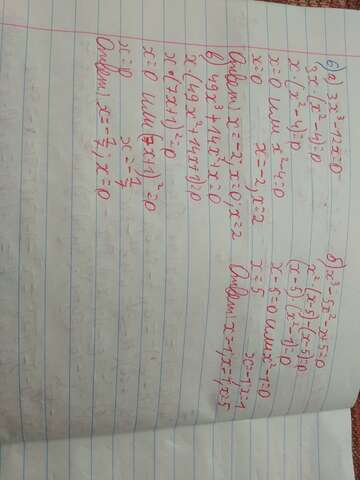 6) а) 3x³-12x=0
3x·(x²-4)=0
x·(x²-4)=0
x=0 или x²-4=0
x=0 x=-2, x=2
Ответ: x=-2, x=0, x=2
в) 49x³+14x²+x=0
x·(49x²+14x+1)=0
x·(7x+1)²=0
x=0 или (7x+1)²=0
x=0 x=-1/7
Ответ: x=-1/7; x=0
б) x³-5x²-x+5=0
x²·(x-5)-(x-5)=0
(x-5)·(x²-1)=0
x-5=0 или x²-1=0
x=5 x=-1, x=1
Ответ: x=-1, x=1, x=5